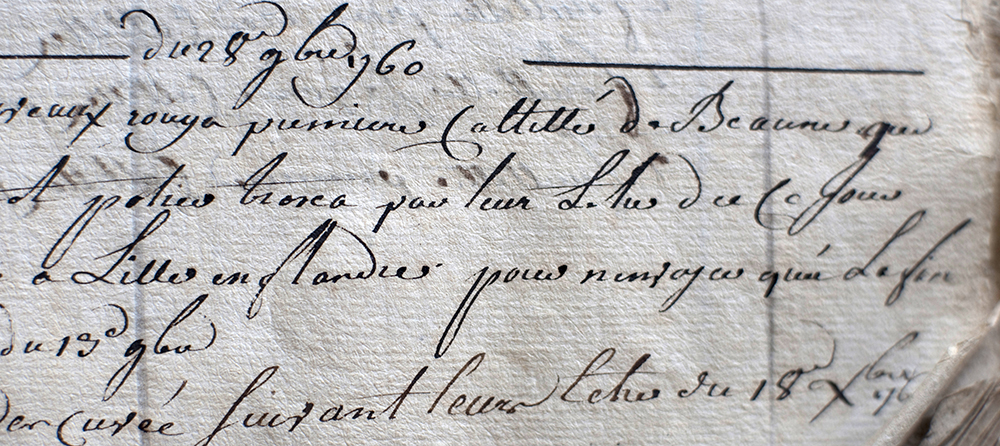 du 28e 9bre 1760
rouga premiere Callitté de Beaune que
et potier par leur Letre du Ce Jour
a Lille en flandre pour n'envoyer qu'a La fin
du 13e 9bre
cuvée suivant leur letre du 18e Xbre 176